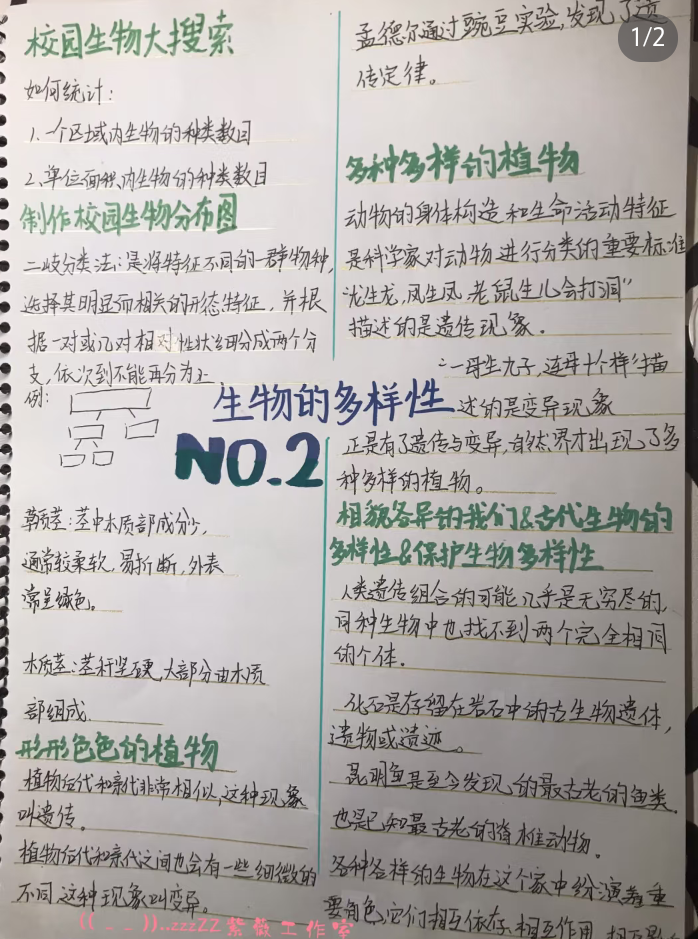 校园生物大搜索
如何统计:
1、一个区域内生物的种类数目
2、单位面积内生物的种类数目
制作校园生物分布图
二歧分类法:是将特征不同的一群物种,
选择其明显而相关的形态特征,并根
据一对或几对相对性状细分成两个分
支,依次到不能再分为止
例:
生物的多样性
NO.2
草质茎:茎中木质部成分少,
通常较柔软,易折断,外表
常呈绿色。
木质茎:茎秆坚硬,大部分由木质
部组成.
形形色色的植物
植物后代和亲代非常相似,这种现象
叫遗传.
植物后代和亲代之间也会有一些细微的
不同,这种现象叫变异。
孟德尔通过豌豆实验,发现了遗
传定律。
多种多样的植物
动物的身体构造和生命活动特征
是科学家对动物进行分类的重要标准
"龙生龙,凤生凤,老鼠生儿会打洞"
描述的是遗传现象.
"一母生九子,连母十个样"描
述的是变异现象
正是有了遗传与变异,自然界才出现了多
种多样的植物。
相貌各异的我们&古代生物的
多样性&保护生物多样性
人类遗传组合的可能几乎是无穷尽的,
同种生物中也找不到两个完全相同
的个体.
化石是存留在岩石中的古生物遗体,
遗物或遗迹。
昆明鱼是至今发现的最古老的鱼类.
也是已知最古老的脊椎动物.
各种各样的生物在这个家中纷演着重
要角色,它们相互依存,相互作用,相互影
((_ _))..zzzZZ紫薇工作室
1/2